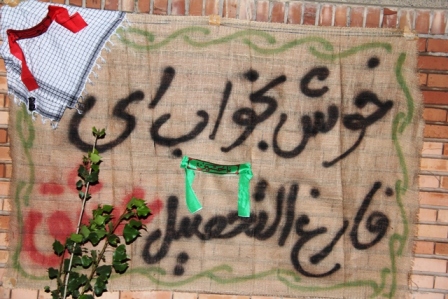 خوش بخواب ای
فارغ التحصیل عشق